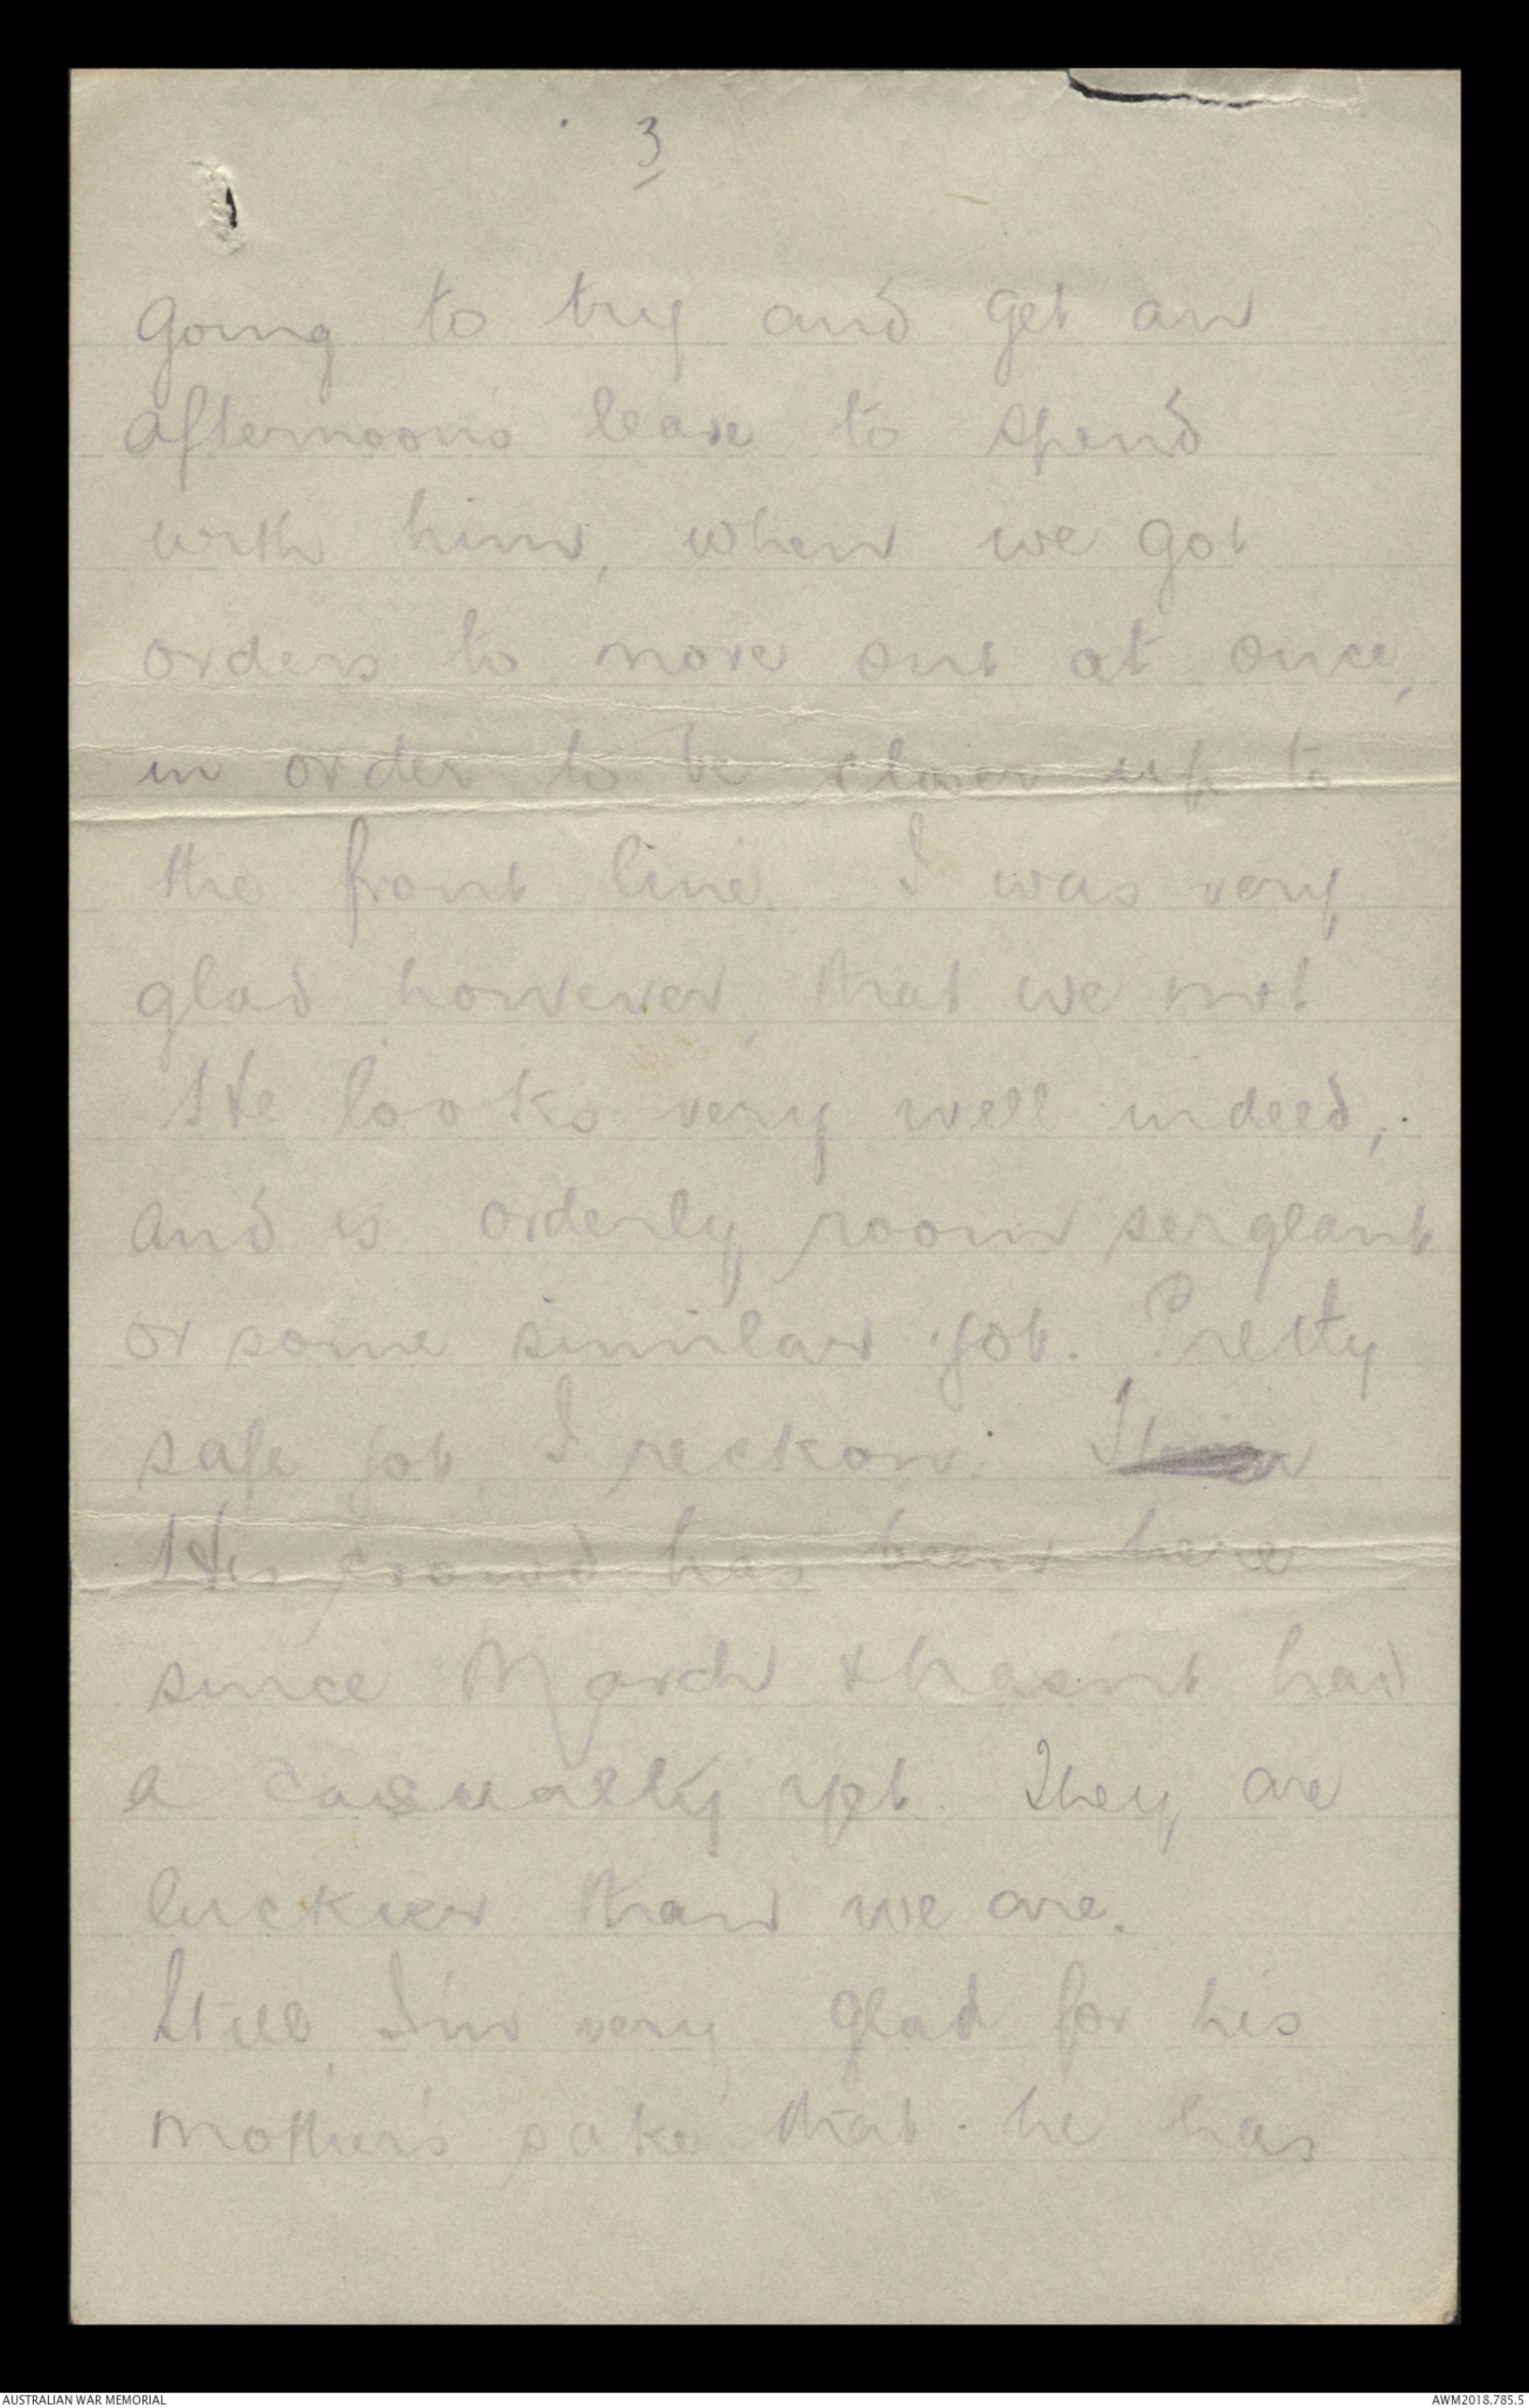 3
going to try and get an
afternoon's leave to spend
with him, when we got
orders to move out at once,
in order to be closer up to
the front line. I was very
glad, however, that we met
He looks very well indeed,
and is orderly room sergeant
or some similar job. Pretty
safe job I reckon.
His crowd has been here
since March & hasn't had
a casualty yet. They are
luckier than we are.
Still, I'm very, glad for his
mother's sake that he has
AUSTRALIAN WAR MEMORIAL
AWM2018.785.5